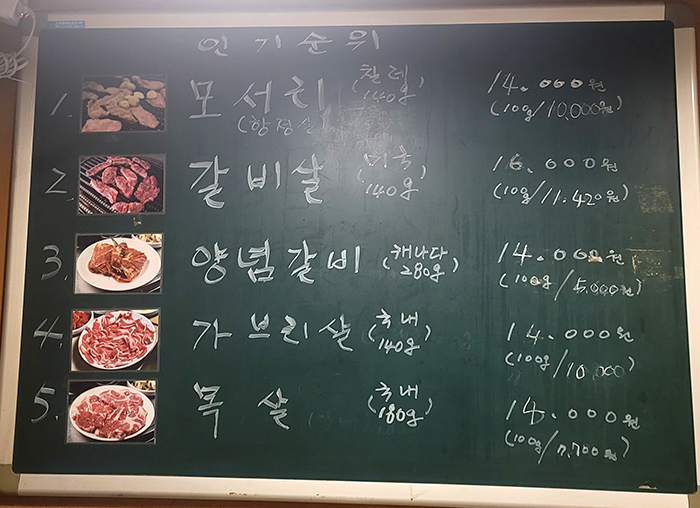 인기순위
1. 모서리 (칠레 140g) 14.000원
(항정살) (100g/10,000원)
2. 갈비살 (미국 140g) 16.000원
(100g/11.420원)
3. 양념갈비 (캐나다 280g) 14.000원
(100g/5,000원)
4. 가브리살 (국내 140g) 14.000원
(100g/10,000)
5. 목살 (국내 180g) 14.000원
(100g/7,700원)